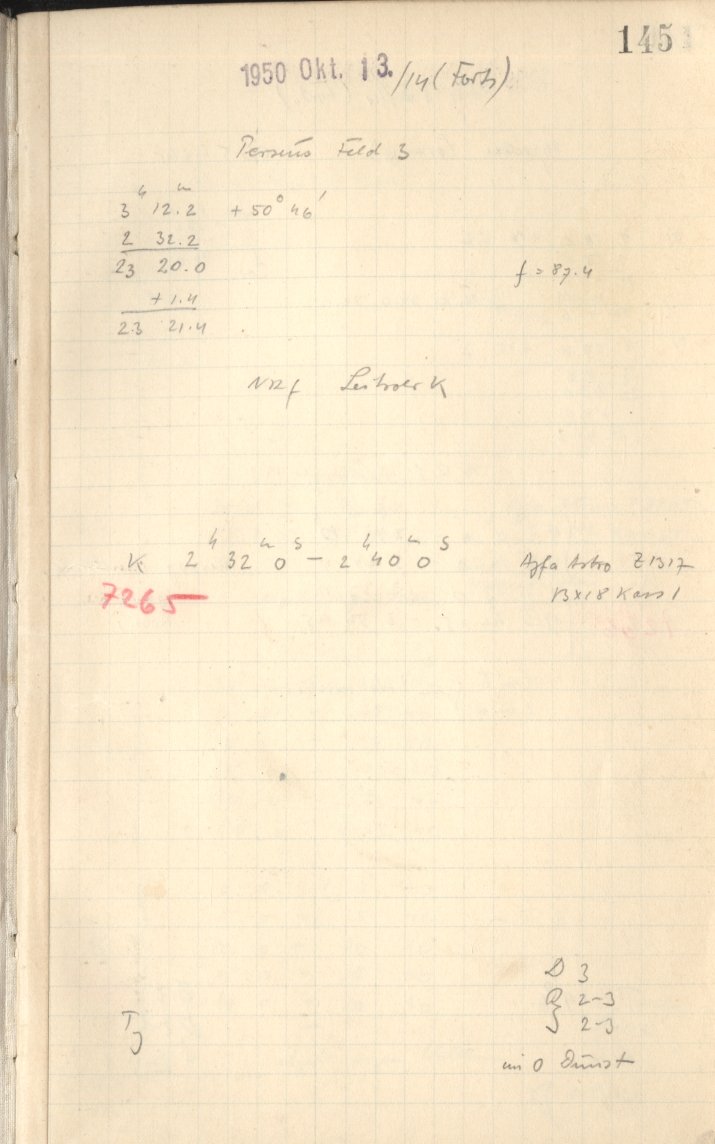 145
1950 Okt. 13./14 (Forts)
Perseus Feld 3
3 h 12.2 m + 50° 46'
2 32.2
23 20.0
f = 87.4
+ 1.4
23 21.4
K 2 h 32 m 0 s – 2 h 40 m 0 s Agfa Astro Z1317
7265
13x18 Kass 1
D 3
R 2-3
J 2-3
im O Dunst